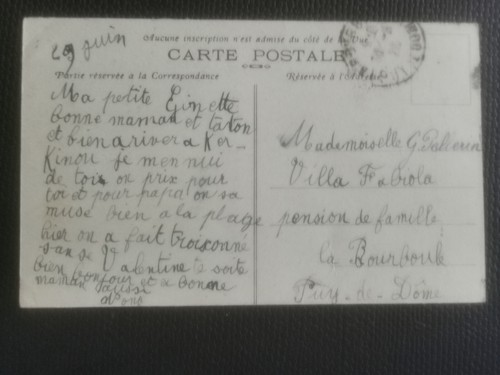 29 juin
Aucune inscription n'est admise du côté de
CARTE POSTALE
Partie réservée à la Correspondance
Réservée à l'
Ma petite Ginette
bonne maman et taton
et bien ariver a Ker-
Kinou je men nui
de toi on prix pour
toi et pour papa on sa
muse bien a la plage
hier on a fait troixconné
san se Valentine te soite
bien bonjour et a bonne
maman aussi
Mademoiselle G Pellerin
Villa Fabiola
pension de famille
la Bourboule
Puy-de-Dôme